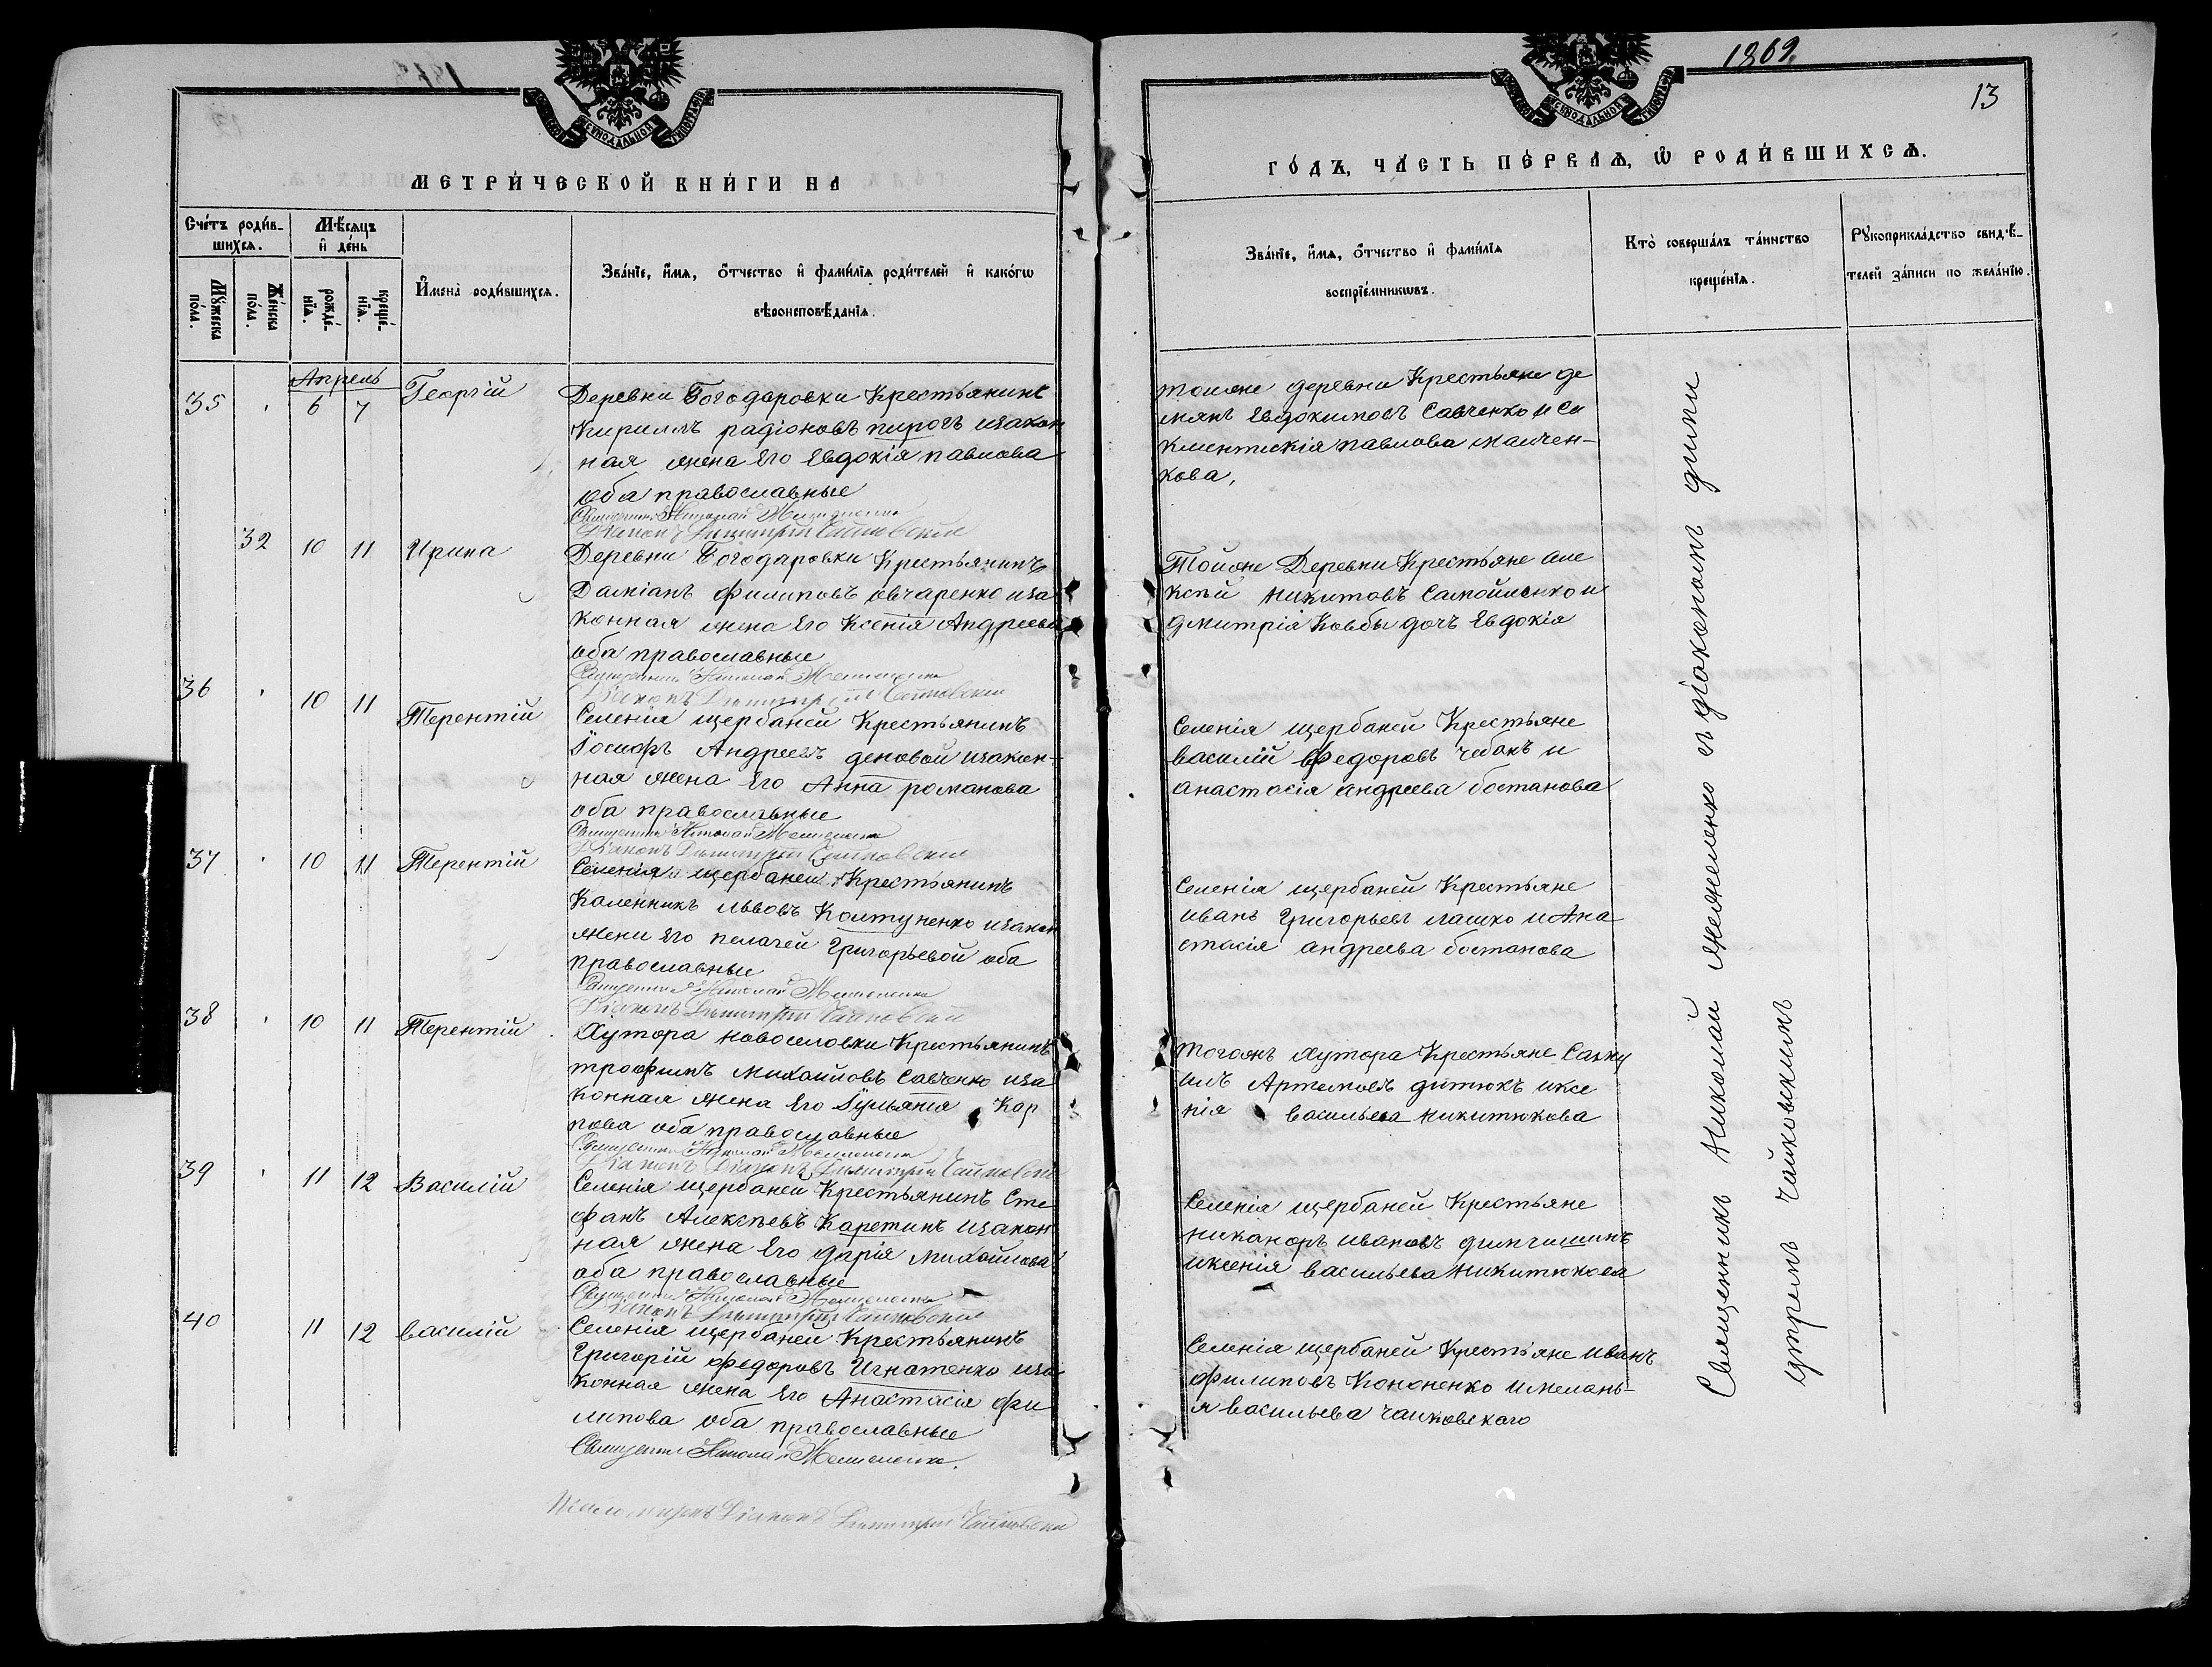 1869.
13
МЕТРИ́ЧЕСКОЙ КНИ́ГИ НА
ГО́ДЪ, ЧА́СТЬ ПЕ́РВАѦ, Ѡ РОДИ́ВШИХСѦ.
Сче́тъ роди́в-
шихсѧ.
Му́жеска
по́ла.
Же́нска
по́ла.
Мѣ́сѧцъ
и де́нь
рожде́-
нїѧ.
креще́-
нїѧ.
И́мена̀ роди́вшихсѧ.
Зва́нїе, и́мѧ, о́тчество и фами́лїѧ роди́телей и како́гѡ
вѣроисповѣ́данїѧ.
Зва́нїе, и́мѧ, о́тчество и фами́лїѧ
воспрїе́мникѡвъ.
Кто̀ соверша́лъ та́инство
креще́нїѧ.
Рукоприкла́дство свидѣ́-
телей за́писи по жела́нїю.
Апрель
35 6 7 Георгій
Деревни Богодаровки Крестьянинъ
Кириллъ радіоновъ пирогъ изакон
ная жена Его Евдокія павлова
оба православные
Священникъ Николай
Діаконъ Димитрій Чайковскій
тойже деревни Крестьяне де
мянъ Евдокимовъ Савченко и Си
клитикія павлова
кова,
32 10 11 Ирина
Деревни Богодаровки Крестьянинъ
Даміанъ филиповъ овчаренко иза
конная жена Его Ксенія Андреева
оба православные
Священникъ Николай
Діаконъ Димитрій Чайковскій
Тойже Деревни Крестьяне але
ксѣй никитовъ Самойленко и
дмитрія Ковбы дочъ Евдокія
36 10 11 Терентій
Селенія щербаней Крестьянинъ
Іосифъ Андреевъ деновой изакон-
ная жена Его Анна романова
оба православные
Священникъ Николай
Діаконъ Димитрій Чайковскій
Селенія щербаней Крестьяне
василій Федоровъ чабанъ и
анастасія андреева бостанова
37 10 11 Терентій
Селенія щербаней Крестьянинъ
Каленникъ львовъ Колтуненко изакон
жени Его пелагей Григорьевой оба
православные
Священникъ Николай
Діаконъ Димитрій Чайковскій
Селенія щербаней Крестьяне
иванъ Григорьевъ лашко и Ана
стасія андреева бостанова
38 10 11 Терентій
Хутора новоселовки Крестьянинъ
трофимъ михайловъ Савченко иза
конная жена Его Іульянія Кар
пова оба православные
Священникъ Николай
Діаконъ Діаконъ Димитрій Чайковскій
тогожъ Хутора Крестьяне Саму
илъ Артемовъ дитюкъ иксе
нія васильева никитюкова
39 11 12 Василій
Селенія щербаней Крестьянинъ Сте
фанъ Алексѣевъ Каретинъ изакон
ная жена Его дарія михайлова
оба православные
Священникъ Николай
Діаконъ Димитрій Чайковскій
Селенія щербаней Крестьяне
никаноръ ивановъ
иксенія васильева никитюкова
40 11 12 василій
Селенія щербаней Крестьянинъ
Григорій федоровъ Игнатенко иза
конная жена Его Анастасія фи
липова оба православные
Священникъ Николай
Діаконъ Димитрій Чайковскій
Селенія щербаней Крестьяне иванъ
филиповъ Кононенко имелань-
я васильева чайковскаго
Священникъ Николай межеменко съ діакономъ дими
тріемъ чайковскимъ